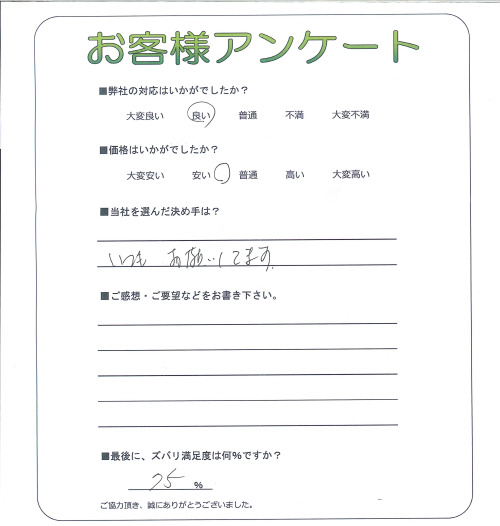 お客様アンケート
■弊社の対応はいかがでしたか？
大変良い 良い 普通 不満 大変不満
■価格はいかがでしたか？
大変安い 安い 普通 高い 大変高い
■当社を選んだ決め手は？
いつも お願いしてます。
■ご感想・ご要望などをお書き下さい。
■最後に、ズバリ満足度は何%ですか？
75 %
ご協力頂き、誠にありがとうございました。